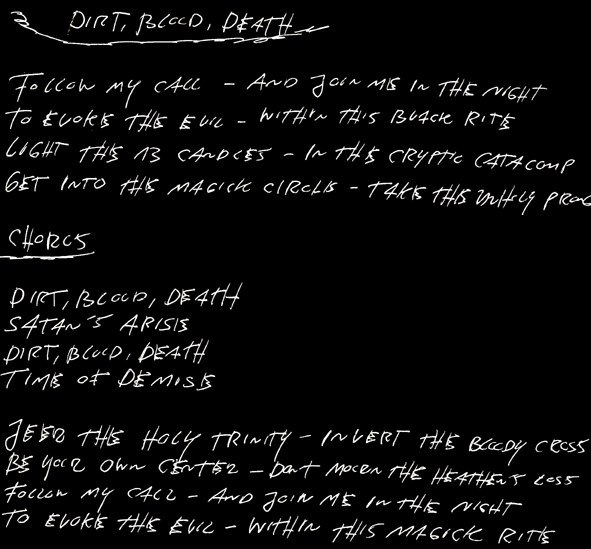 3 DIRT, BLOOD, DEATH
FOLLOW MY CALL – AND JOIN ME IN THE NIGHT
TO EVOKE THE EVIL – WITHIN THIS BLACK RITE
LIGHT THE 13 CANDLES – IN THE CRYPTIC CATACOMP
GET INTO THE MAGICK CIRCLE – TAKE THIS UNHOLY
CHORUS
DIRT, BLOOD, DEATH
SATAN'S ARISE
DIRT, BLOOD, DEATH
TIME OF DEMISE
JEER THE HOLY TRINITY – INVERT THE BLOODY CROSS
BE YOUR OWN CENTER – DONT MOURN THE HEATHENS LOSS
FOLLOW MY CALL – AND JOIN ME IN THE NIGHT
TO EVOKE THE EVIL – WITHIN THIS MAGICK RITE